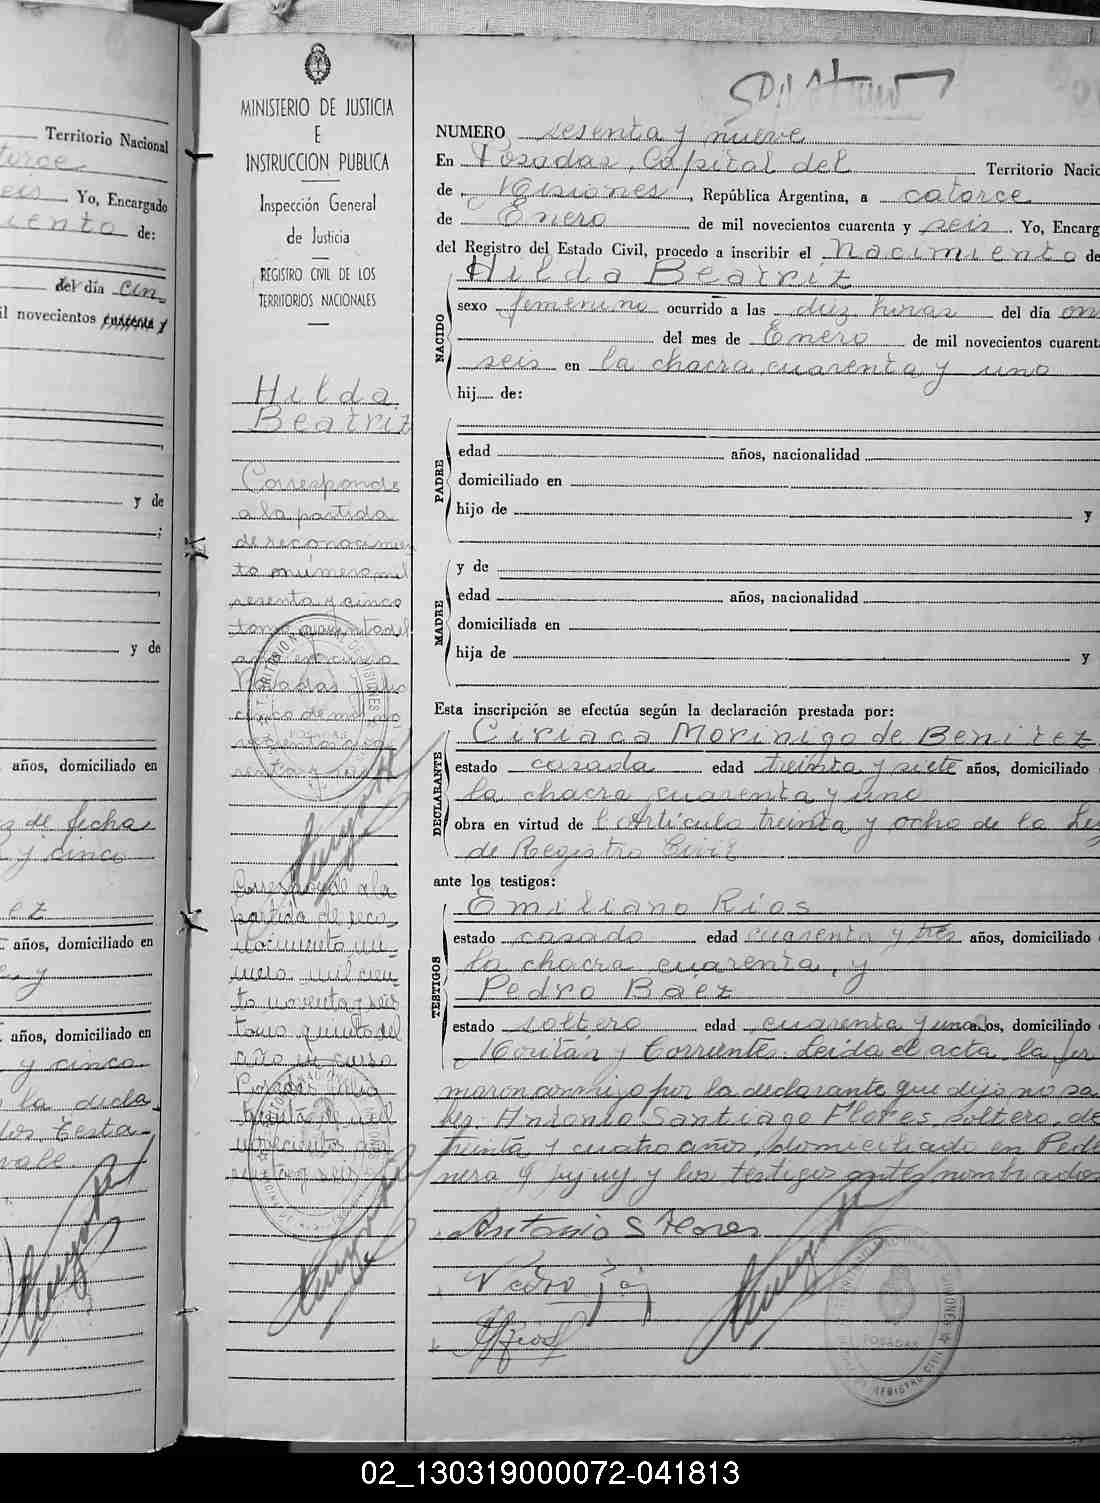 Territorio Nacional
Yo, Encargado
de:
del día Cin
il novecientos cuarenta y
y de
;
y de
años, domiciliado en
de fecha
y cinco
años, domiciliado en
y
años, domiciliado en
y cinco
la decla
los testa
vale
MINISTERIO DE JUSTICIA
E
INSTRUCCION PUBLICA
Inspección General
de Justicia
REGISTRO CIVIL DE LOS
TERRITORIOS NACIONALES
Hilda
Beatriz
Corresponde
a la partida
de reconocimien
to número mil
sesenta y cinco
tomo quinto del
año en curso
Posadas
cinco de
Corresponde a la
partida de reco-
nocimiento nu-
mero mil cien-
to noventa y seis
tomo quinto del
año en curso
Posadas
novecientos cua-
renta y seis
NUMERO sesenta y nueve
En Posadas, Capital del Territorio Nacio
de Misiones, República Argentina, a catorce
de Enero de mil novecientos cuarenta y seis. Yo, Encarg
del Registro del Estado Civil, procedo a inscribir el Nacimiento de
Hilda Beatriz
NACIDO
sexo femenino ocurrido a las diez horas del día on
del mes de Enero de mil novecientos cuarent
seis en la chacra cuarenta y uno
hij de:
PADRE
edad años, nacionalidad
domiciliado en
hijo de y
MADRE
y de
edad años, nacionalidad
domiciliada en
hija de y
Esta inscripción se efectúa según la declaración prestada por:
DECLARANTE
Ciriaca Morinigo de Benitez
estado casada edad treinta y siete años, domiciliado
la chacra cuarenta y uno
obra en virtud de l Artículo treinta y ocho de la Ley
de Registro Civil
ante los testigos:
TESTIGOS
Emiliano Rios
estado casado edad cuarenta y tres años, domiciliado
la chacra cuarenta, y
Pedro Baez
estado soltero edad cuarenta y uno años, domiciliado
Roultán y Corriente. Leida el acta, la fir
maron conmigo por la declarante que dijo no sa
ber. Antonio Santiago Flores, soltero, de
treinta y cuatro años, domiciliado en Pede
nera y Jujuy y los testigos antes nombrados
Antonio S Flores
Pedro
E Rios
POSADAS
02_130319000072-041813